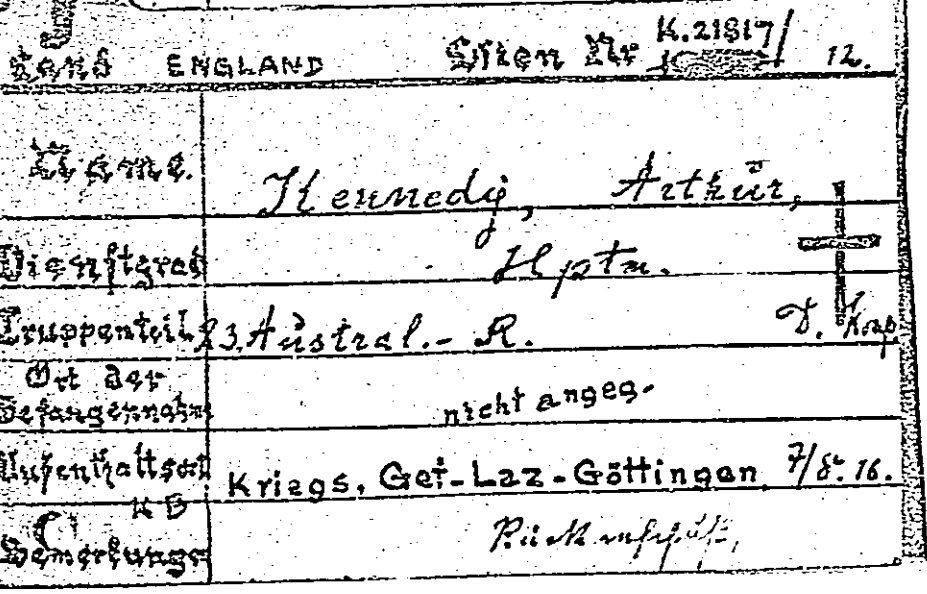 Land ENGLAND Listen Nr K.21817/ 12.
Name. Kennedy, Arthur,
Dienstgrad Hptm.
Truppenteil 23, Austral.- R. D. Komp
Ort der
Gefangennahm nicht angeg.
Aufenthaltsort Kriegs. Gef-Laz-Göttingen 7/8. 16.
KB
Bemerkunge Rückenschuß,